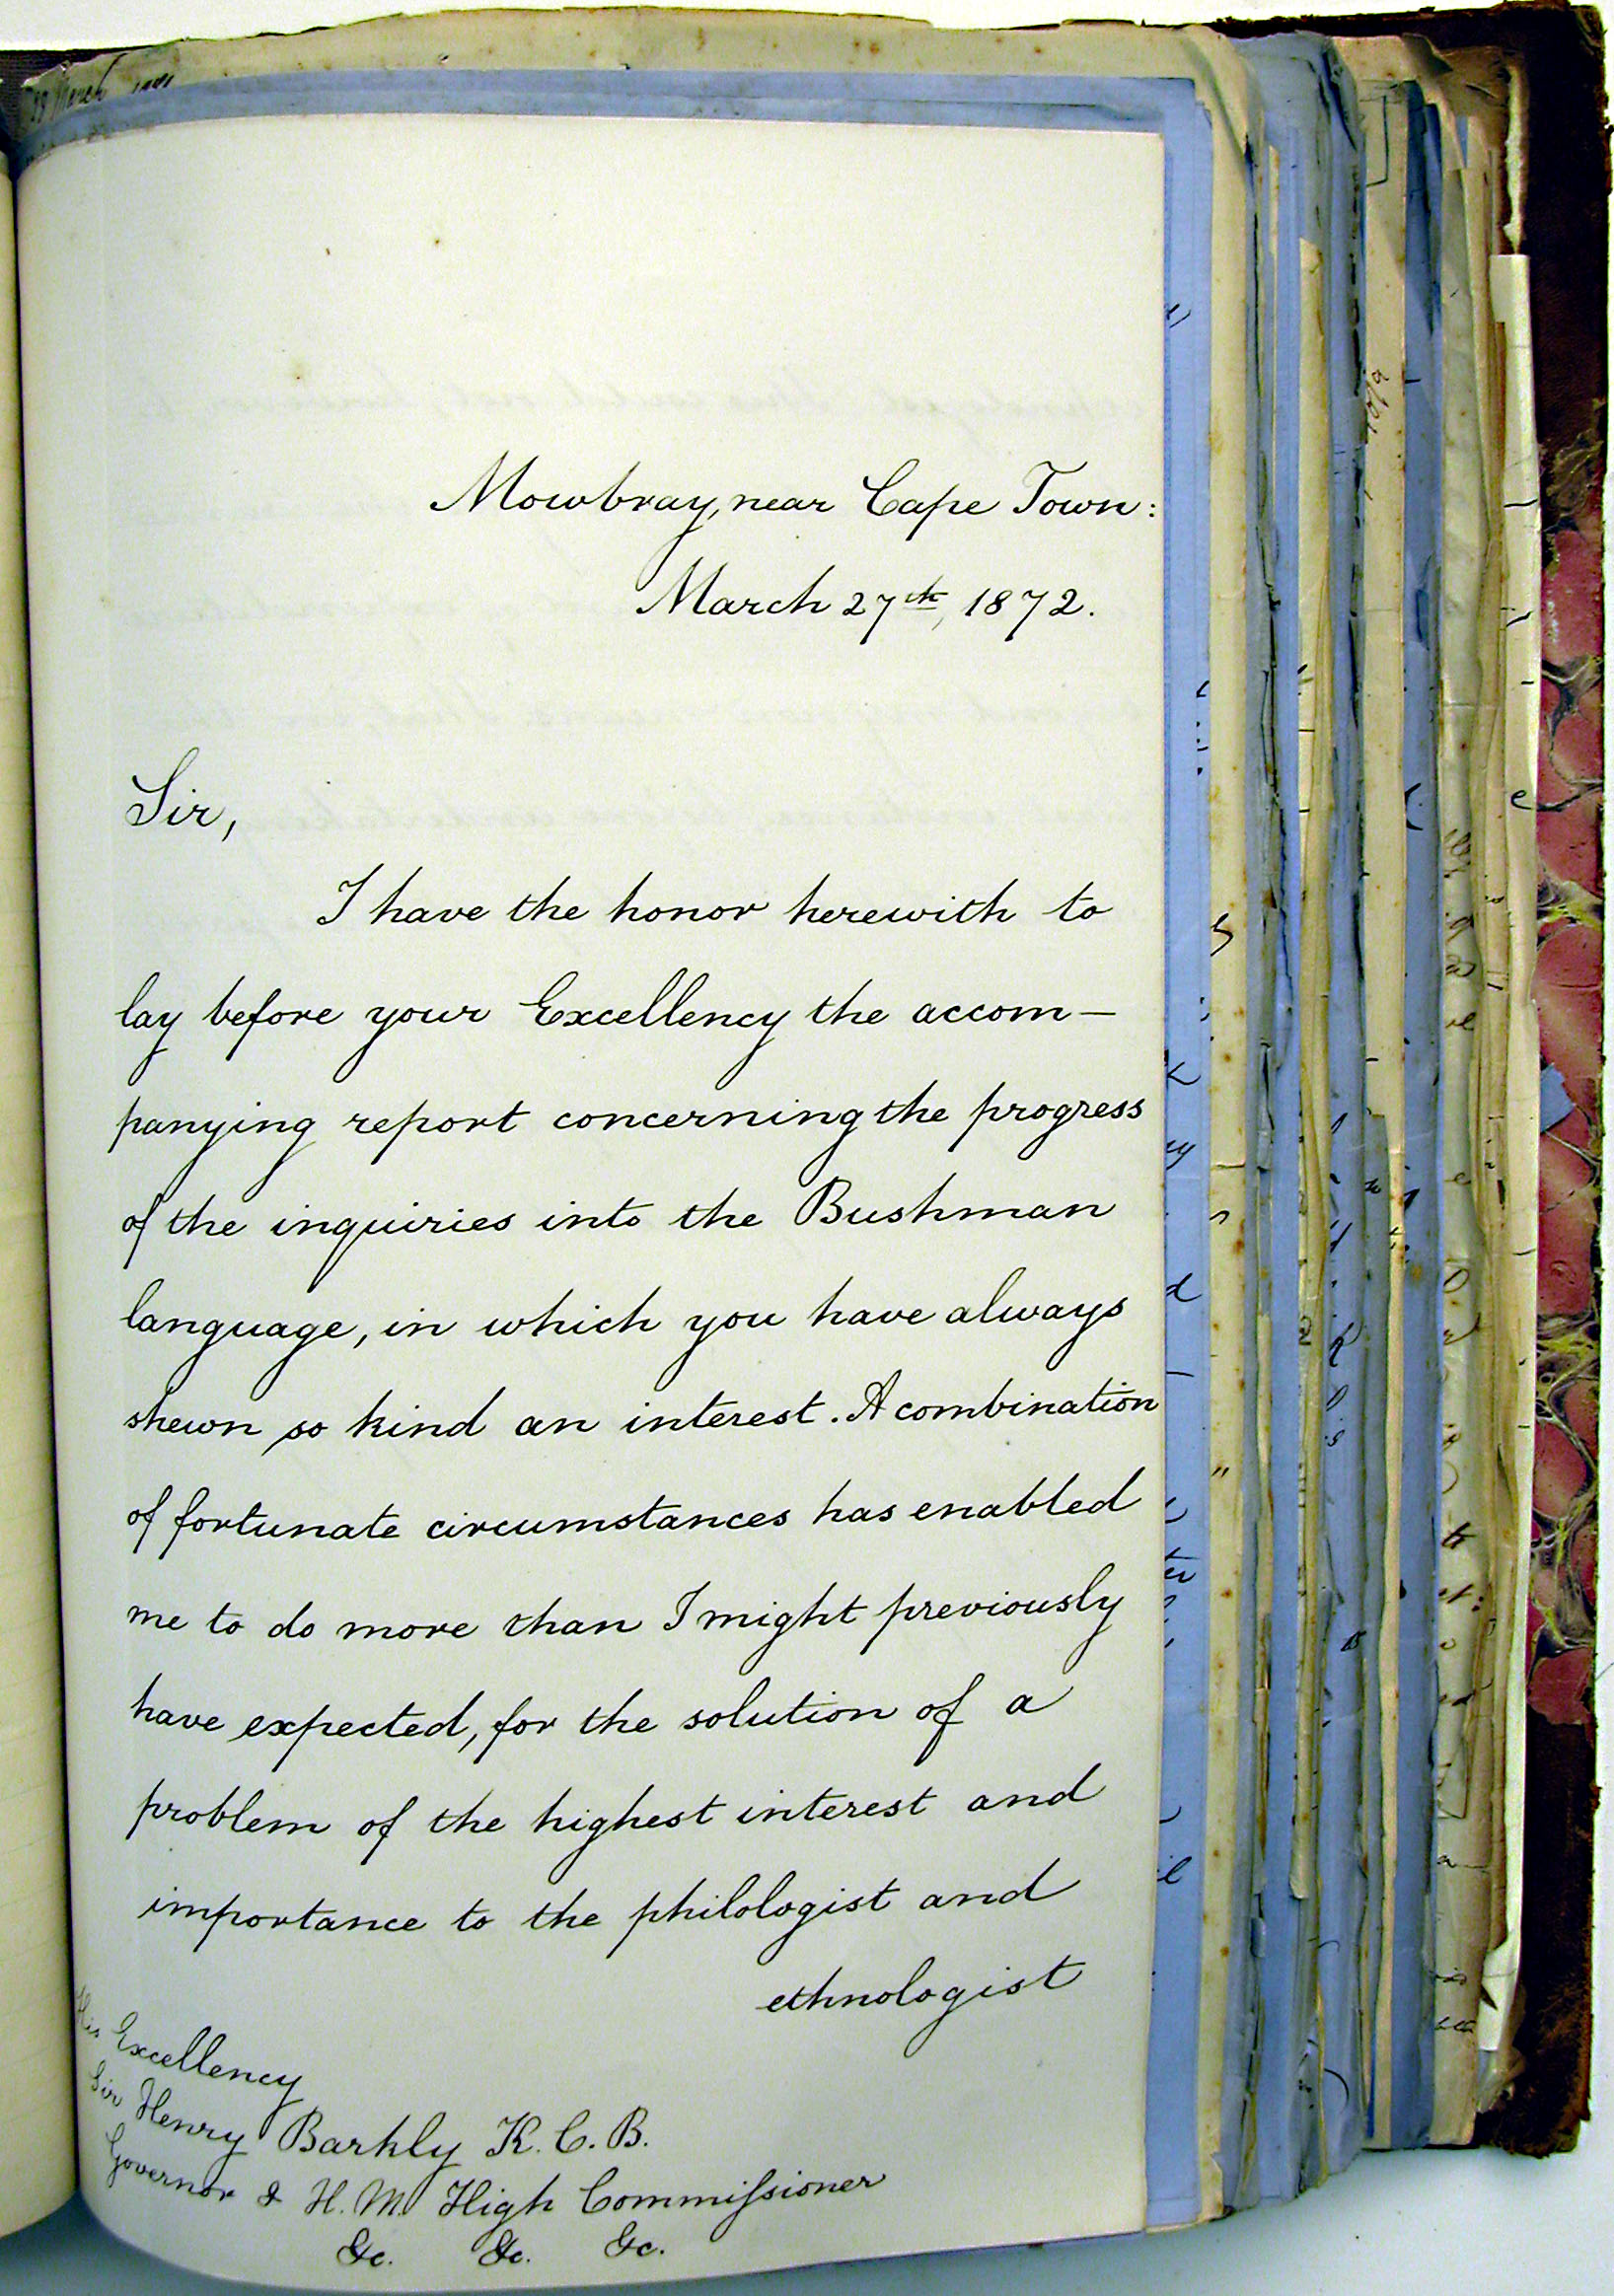 Mowbray, near Cape Town:
March 27th, 1872.
Sir,
I have the honor herewith to
lay before your Excellency the accom—
panying report concerning the progress
of the inquiries into the Bushman
language, in which you have always
shewn so kind an interest. A combination
of fortunate circumstances has enabled
me to do more than I might previously
have expected, for the solution of a
problem of the highest interest and
importance to the philologist and
ethnologist
His Excellency
Sir Henry Barkly K. C. B.
Governor & H. M. High Commissioner
&c. &c. &c.